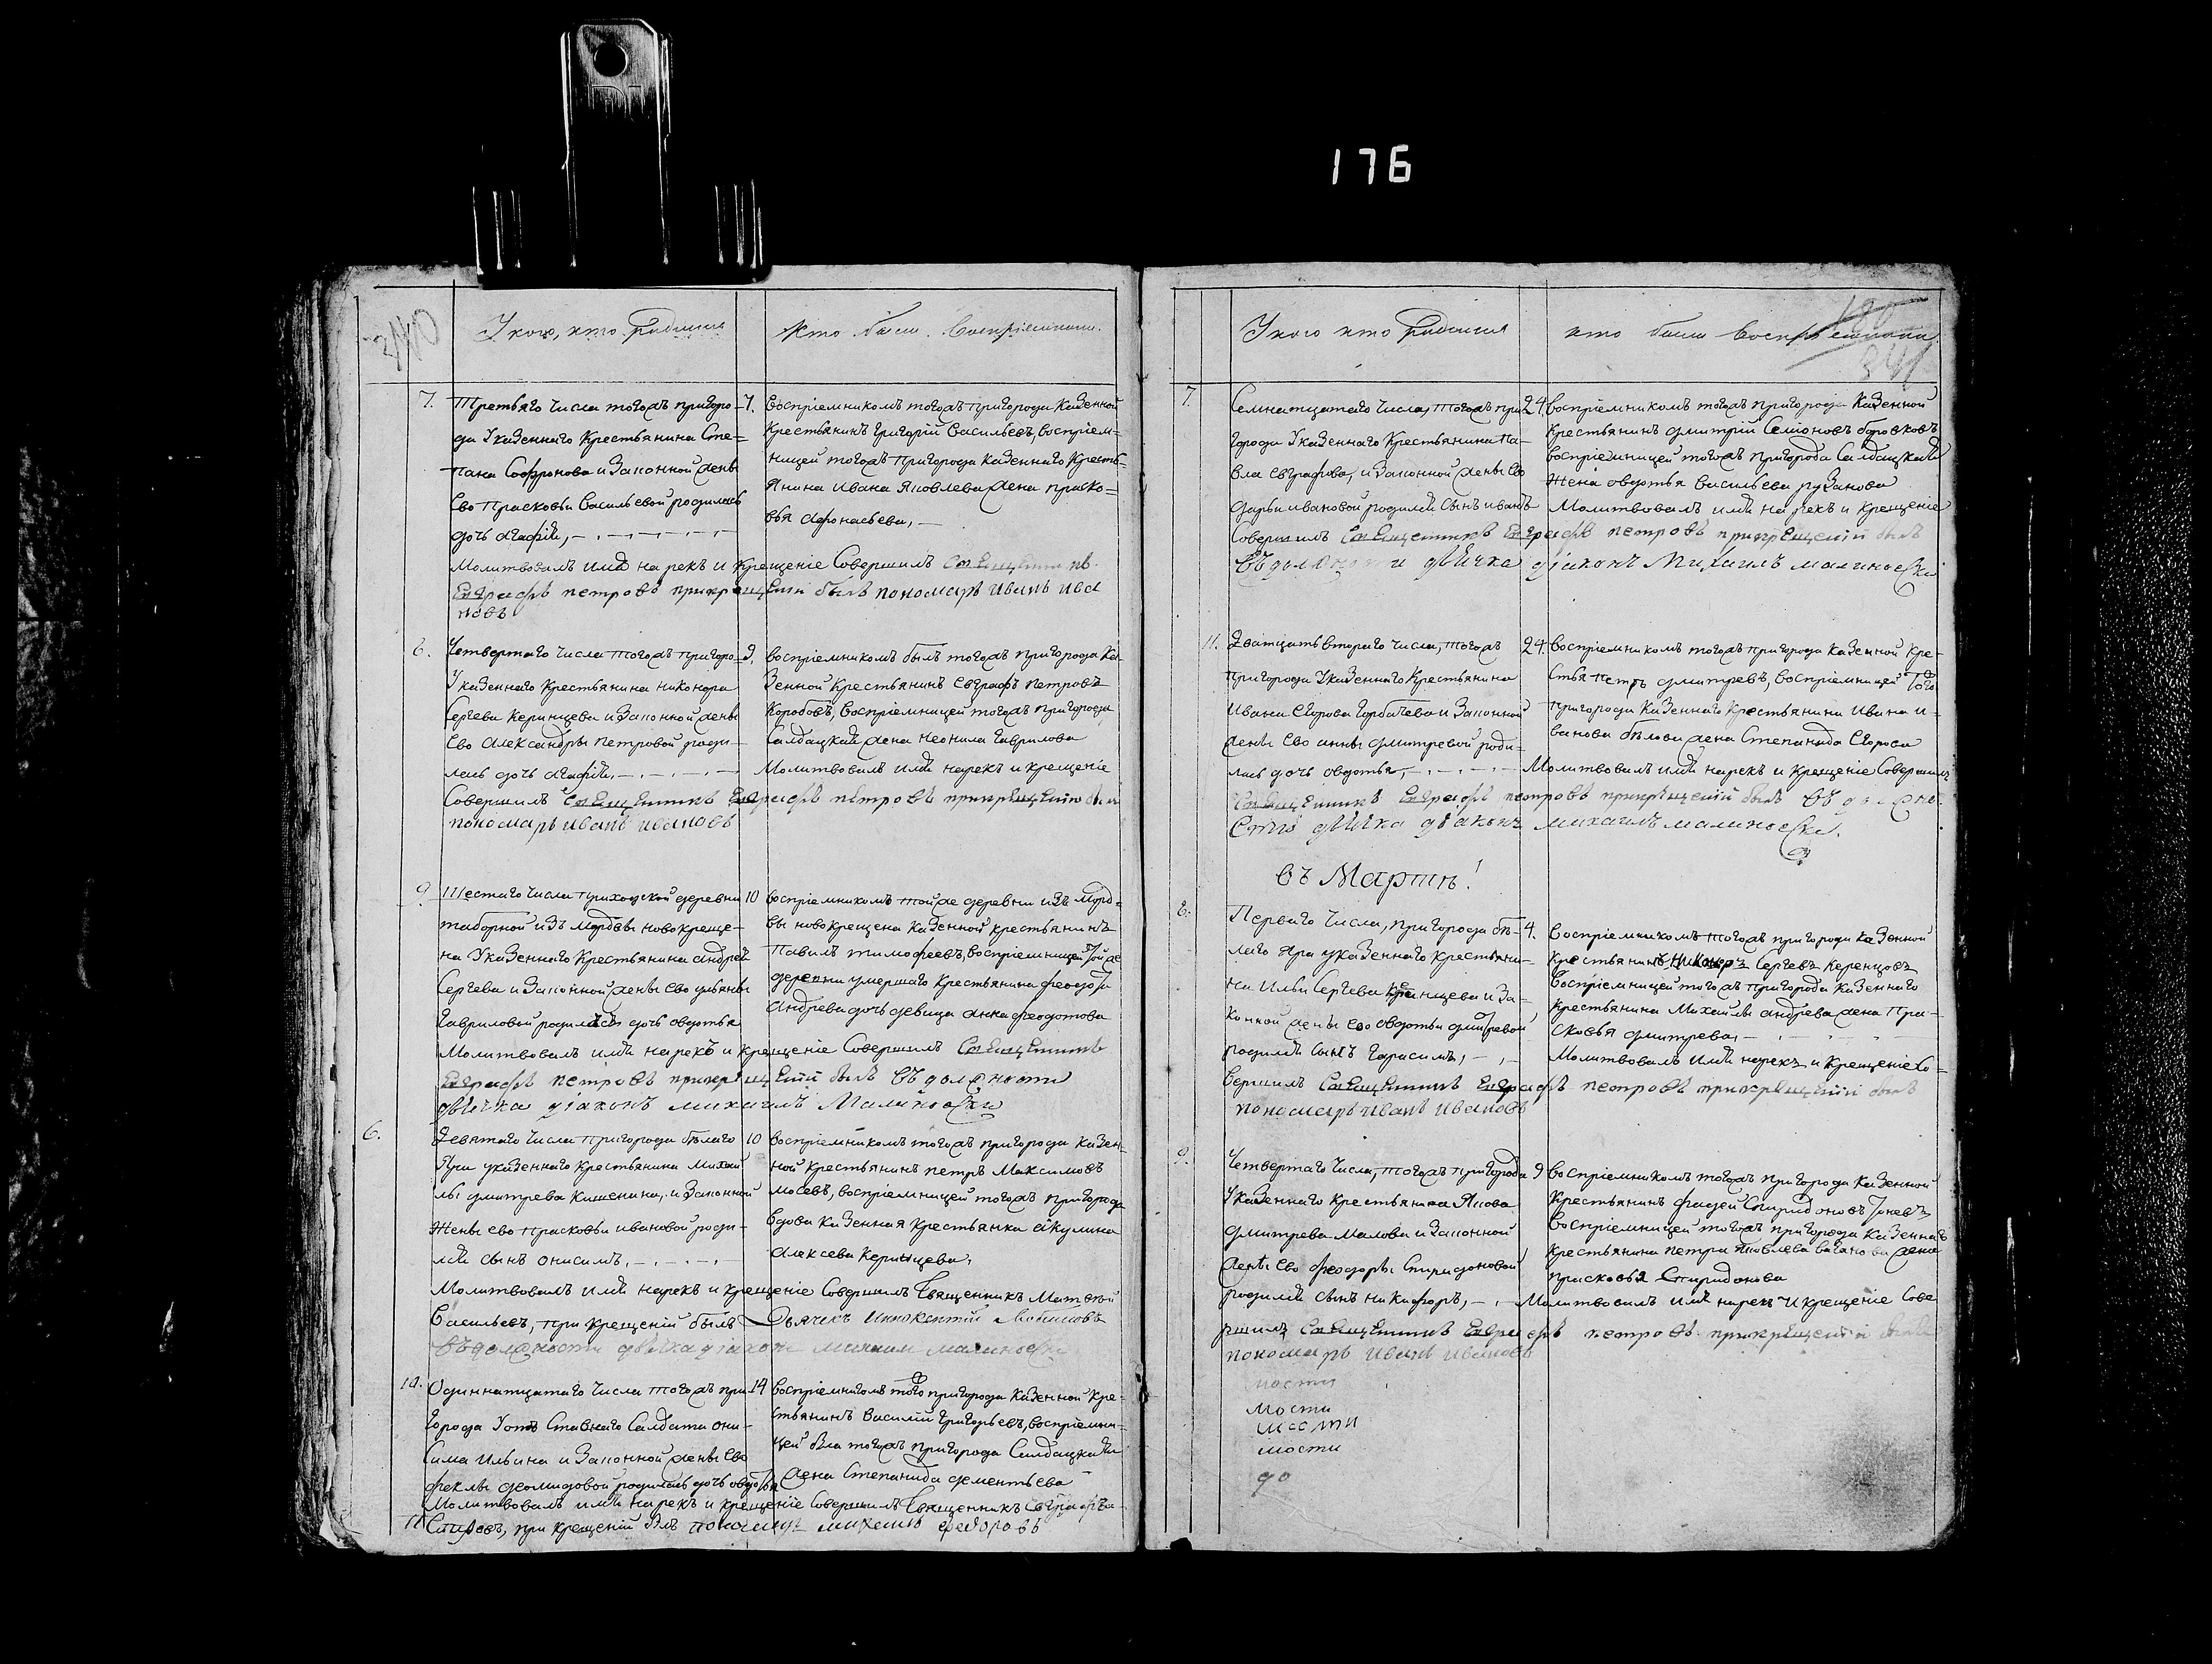 176
340
У кого, кто Родился
Кто были Восприемники.
7. Третьяго Числа тогожъ пригоро-
да Указеннаго Крестьянина Сте=
пана Софронова и Законной жены
Ево Прасковьи Васильевой родилась
дочь Агафiя,
7. Восприемникомъ тогожъ пригорода Казенной
Крестьянинъ Григорiй Васильевъ, восприем=
ницей тогожъ пригорода Казеннаго Кресть-
янина Ивана Яковлева жена праско=
вья Афонасьева,
Молитвовалъ имя нарекъ и крещенiе Совершилъ Священникъ
Евграфъ петровъ прикрещенiи былъ пономарь иванъ ива
новъ
6. Четвертаго Числа тогожъ пригоро-
Указеннаго Крестьянина никонора
Сергева Керинцева и Законной жены
Ево Александры Петровой роди-
лась дочь Агафiя,
9. восприемникомъ былъ тогожъ пригорода Ка-
зенной Крестьянинъ Евграфъ Петровъ
Коробовъ, восприемницей тогожъ пригорода
Салдацкая жена Неонила Гаврилова
Молитвовалъ имя нарекъ и крещенiе
Совершилъ Священникъ Евграфъ петровъ прикрещенiю былъ
пономарь иванъ ивановъ
9. Шестаго Числа приходской деревни
таборной изъ Мордвы новокреще-
на Указеннаго Крестьянина андрея
Сергева и Законной жены Ево ульяны
Гавриловой родилась дочь овдотья
10 восприемникомъ тойже деревни изъ Морд=
вы новокрещена Казенной крестьянинъ
Павилъ тимофеевъ, восприемницей тойже
деревни умершаго Крестьянина феодота
Андрева дочь девица анна феодотова
Молитвовалъ имя нарекъ и крещенiе Совершилъ Священникъ
Евграфъ петровъ прикрещенiи былъ въ должности
дьячка дiаконъ михаилъ Малиновски
6. Девятаго Числа пригорода белаго
Яра указеннаго Крестьянина Михаи
лы дмитрева Кишенина, и Законной
Жены ево Прасковьи ивановой роди-
лся сынъ онисимъ,
10 восприемникомъ тогожъ пригорода Казен-
ной крестьянинъ петръ Максимовъ
мосевъ, восприемницей тогожъ пригорода
вдова Казенная Крестьянка Акулина
Алексева Керинцева,
Молитвовалъ имя нарекъ и крещенiе Совершилъ Священникъ Матвей
Васильевъ, при крещенiи былъ Дьячекъ Иннокентiй
въ должности дьячка дiаконъ михаил малиновски
10. Одиннатцатаго Числа тогожъ при-
города У отставнаго Салдата они-
сима Ильина и Законной жены Ево
феклы деомидовой родилась дочь овдотья
14 восприемникомъ того пригорода Казенной кре-
стьянинъ василiй Григорьевъ, восприемни-
цей была тогожъ пригорода Салдацкая
жена Степанида дементьева
Молитвовалъ имя нарекъ и крещенiе Совершилъ Священникъ Евграфъ
при крещенiи былъ пономарь михаилъ федоровъ
341
У кого кто Родился
кто были Восприемники.
7. Семнатцатаго Числа, тогожъ при-
города Указеннаго Крестьянина Па-
вла Евграфова, и Законной жены Ево
дарьи ивановой родился Сынъ иванъ
24. восприемникомъ тогожъ пригорода Казенной
Крестьянинъ дмитрiй Семiоновъ боровковъ
восприемницей тогожъ пригорода Салдацкая
жена овдотья васильева рузанова
Молитвовалъ имя нарекъ и крещенiе
Совершилъ Священникъ Евграфъ петровъ прикрещенiи былъ
Въ должности дьячка дiаконъ Михаилъ малиновски
11. Дватцать втораго числа, тогожъ
пригорода Указеннаго Крестьянина
Ивана Егорова Горбачева и Законной
жены Ево анны дмитревой роди-
лась дочь овдотья,
24. восприемникомъ тогожъ пригорода казенной кре-
стья петръ дмитревъ, восприемницей того
пригорода Казеннаго Крестьянина Ивана и-
ванова белова жена Степанида Егорова
Молитвовалъ имя нарекъ и крещенiе Совершилъ
Священникъ Евграфъ петровъ прикрещенiи былъ въ должно-
сти дьячка дiаконъ михаилъ малиновски.
въ Марте!
8. Перваго Числа, пригорода бе-
лаго Яра указеннаго крестьяни-
на Ильи Сергева Керинцева и За-
конной жены ево овдотьи дмитревой
родился сынъ Гарасимъ,
4. Восприемникомъ тогожъ пригорода казенной
крестьянинъ Никонор Сергевъ Керенцовъ
восприемницей тогожъ пригорода Казеннаго
крестьянина Михайлы андрева жена Пра-
сковья дмитрева,
Молитвовалъ имя нарекъ и крещенiе Со-
вершилъ Священникъ Евграфъ петровъ прикрещенiи былъ
пономарь иванъ ивановъ
9. Четвертаго Числа, тогожъ пригорода
Указеннаго Крестьянина Якова
дмитрева Малова и Законной
жены Ево феодоры Спиридоновой
родился сынъ Никифоръ,
9 восприемникомъ тогожъ пригорода Казенной
Крестьянинъ фадей Спиридоновъ
восприемницей тогожъ пригорода Казеннаго
Крестьянина петра Яковлева жена
прасковья Спиридонова
Молитвовалъ имя нарекъ и крещенiе Сове
ршилъ Священникъ Евграфъ петровъ прикрещенiи былъ
пономарь иванъ ивановъ
ности
мости
мости
до